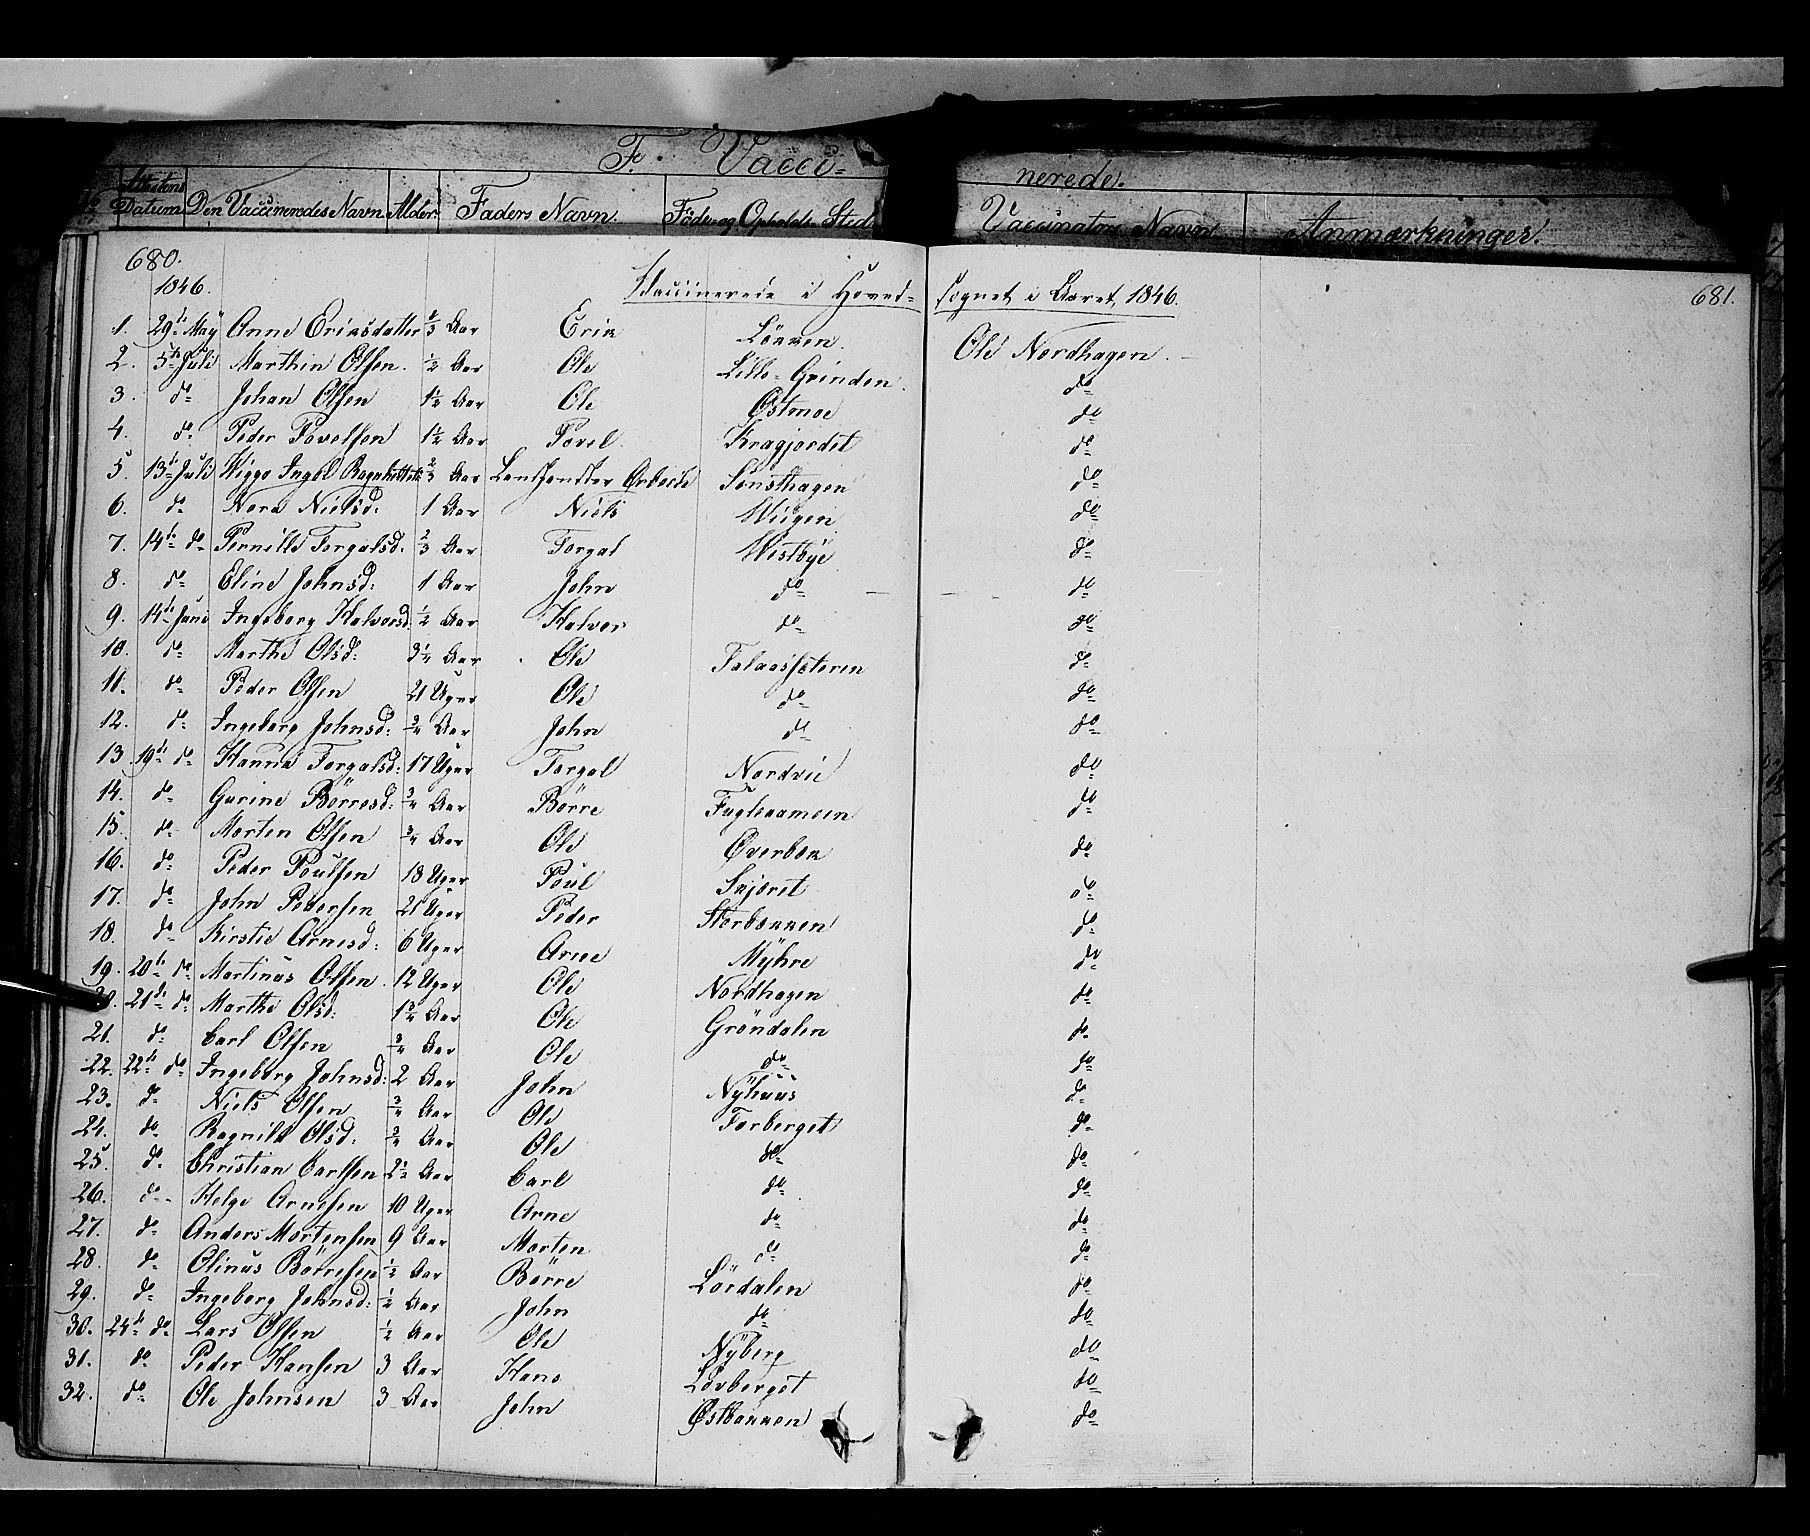 F. Vacci- nerede.
Attestens Datum Den Vaccineredes Navn. Alder Faders Navn. Føde- og Opholds-Sted Vaccinators Navn Anmærkninger.
680. 681.
1846. Vaccinerede i Hoved- sognet i Aaret 1846.
1. 29de May Anne Eriksdatter Aar Erik Lökken. Ole Nordhagen.
2. 5te Juli Marthin Olsen. 1/2 Aar Ole Lille-Grinden do
3. do Johan Olsen 1 1/2 Aar Ole Østmoe do
4. do Peder Povelsen 1 1/2 Aar Povel Kragjordet do
5. 13de Juli Wiggo Aar do
6. do Nora Nielsd: 1 Aar Niels Wiigen do
7. 14de do Pernille Torgalsd: 2/3 Aar Torgal Westbye do
8. do Eline Johnsd: 1 Aar John do do
9. 14de Juni Ingeborg Halvorsd 1/2 Aar Halvor do do
10. do Marthe Olsd: 3 1/4 Aar Ole Falaassæteren do
11. do Peder Olsen 21 Uger Ole do do
12. do Ingeborg Johnsd: 3/4 Aar John do do
13. 19de do Hanna Torgalsd: 17 Uger Torgal Nordvie do
14. do Gurine Börresd: 3/4 Aar Börre Fuglekamoen do
15. do Morten Olsen 3/4 Aar Ole Øverbæk do
16. do Peder Poulsen 18 Uger Poul Skjæret do
17. do John Pedersen 21 Uger Peder Storbækken do
18. do Kirstie Arnesd: 6 Uger Arne Myhre do
19. 20de do Martinus Olsen 12 Uger Ole Nordhagen do
20. 21de do Marthe Olsd: 1 3/4 Aar Ole Gröndalen do
21. do Carl Olsen 3/4 Aar Ole do do
22. 22de do Ingeborg Johnsd: 2 Aar John Nyhuus do
23. do Niels Olsen 3/4 Aar Ole Torberget do
24. do Ragnild Olsd: 3/4 Aar Ole do do
25. do Christian Carlsen 2 1/2 Aar Carl do do
26. do Helge Arnesen 10 Uger Arne do do
27. do Anders Mortensen 9 Aar Morten do do
28. do Olinus Börresen 1/2 Aar Børre Lördalen do
29. do Ingeborg Johnsd: 1/2 Aar John do do
30. 24de do Lars Olsen 1/2 Aar Ole Nyberg do
31. do Peder Hansen 3 Aar Hans Lövberget do
32. do Ole Johnsen 3 Aar John Østbækken do